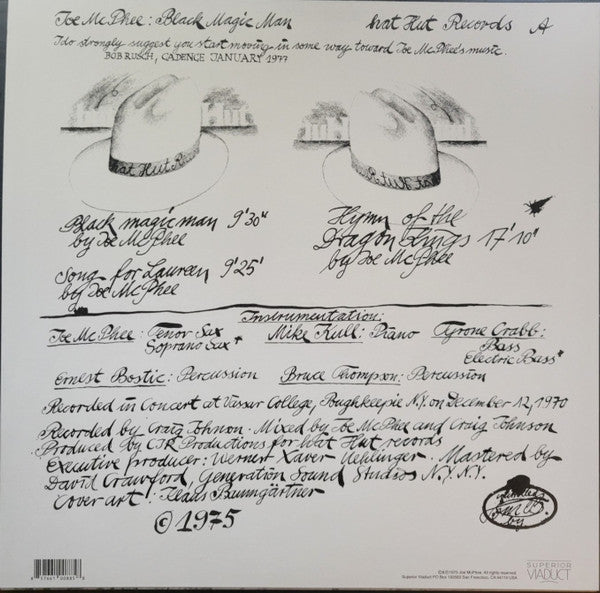 Joe McPhee: Black Magic Man hat Hut Records A
I do strongly suggest you start moving in some way toward Joe McPhee's music.
BOB RUSCH, CADENCE JANUARY 1977
hat Hut R
Black magic man 9'30"
by Joe McPhee
Song for Laureen 9'25'
by Joe McPhee
Hymn of the
Dragon Kings 17'10"
by Joe McPhee
Instrumentation:
Joe McPhee: Tenor Sax
Soprano Sax+
Mike Kull: Piano
Tyrone Crabb:
Bass
Electric Bass"
Ernest Bostic: Percussion Bruce Thompson: Percussion
Recorded in Concert at Vassar College, Poughkeepie N.Y. on December 12, 1970
Recorded by Craig Johnon. Mixed by Joe McPhee and Craig Johnson
Produced by CJR Productions for Hat Hut records
Executive producer: Werner Xaver Uehlinger. Mastered by
David Crawford, Generation Sound Studios N.Y. N.Y.
Cover art: Klaus Baumgärtner
© 1975
by
SUPERIOR
VIADUCT
©&℗1975 Joe McPhee. All rights reserved.
Superior Viaduct PO Box 193563 San Francisco, CA 94119 USA